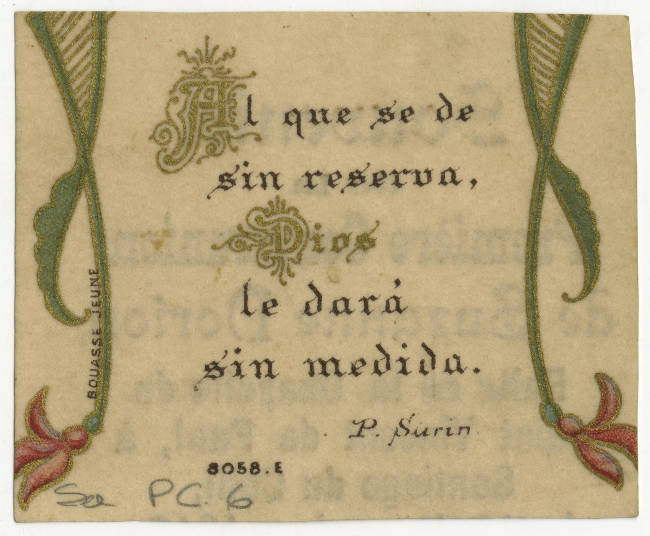 Al que se de
sin reserva,
Dios
le dará
sin medida.
P. Surin
BOUASSE JEUNE
8058.E
PC. 6